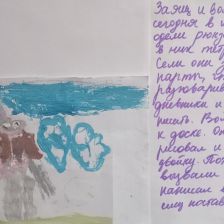 Заяц и во
сегодня в
одели рюкз
В них тет
Сели они
парты, ст
разговарив
дневники и
писать. Вол
к доске. Он
рисовал и
двойку. По
вызвали
написал
ему постав